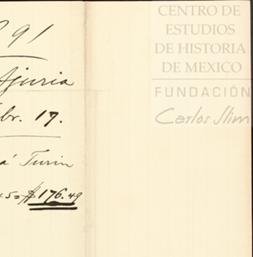 91
Ajuria
br. 17.
á Turin
50 $176.49
CENTRO DE
ESTUDIOS
DE HISTORIA
DE MEXICO
FUNDACIÓN
Carlos Slim